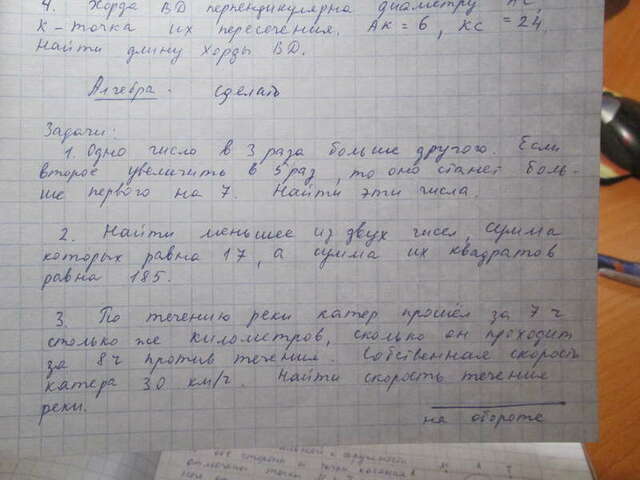 4. Хорда BD перпендикулярна диаметру AC,
K - точка их пересечения. AK = 6, KC = 24.
Найти длину хорды BD.
Алгебра. сделать
Задачи:
1. Одно число в 3 раза больше другого. Если
второе увеличить в 5 раз, то оно станет боль-
ше первого на 7. Найти эти числа.
2. Найти меньшее из двух чисел, сумма
которых равна 17, а сумма их квадратов
равна 185.
3. По течению реки катер прошёл за 7 ч
столько же километров, сколько он проходит
за 8 ч против течения. Собственная скорость
катера 30 км/ч. Найти скорость течения
реки.
на обороте